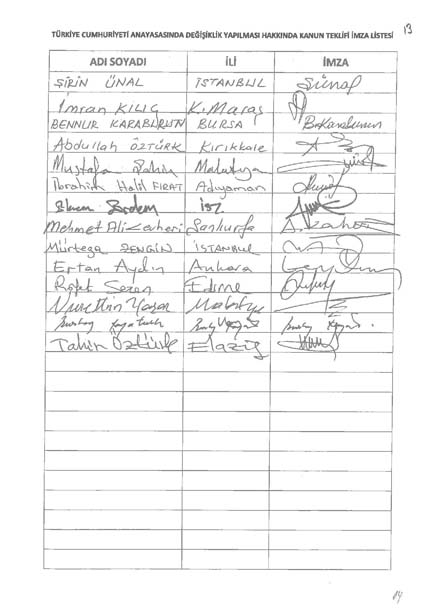 13
TÜRKİYE CUMHURİYETİ ANAYASASINDA DEĞİŞİKLİK YAPILMASI HAKKINDA KANUN TEKLİFİ İMZA LİSTESİ
ADI SOYADI İLİ İMZA
ŞİRİN ÜNAL İSTANBUL Sünal
İmran KILIÇ K.Maraş
BENNUR KARABURUN BURSA BKaraburun
Abdullah ÖZTÜRK Kırıkkale
Mustafa Şahin Malatya
İbrahim Halil FIRAT Adıyaman
İST.
Mehmet Ali Cevheri Şanlıurfa
Mürteza ZENGİN İSTANBUL
Ertan Aydın Ankara
Rafet Sezen Edirne
Nurettin Yaşar Malatya
Tahir Öztürk Elazığ